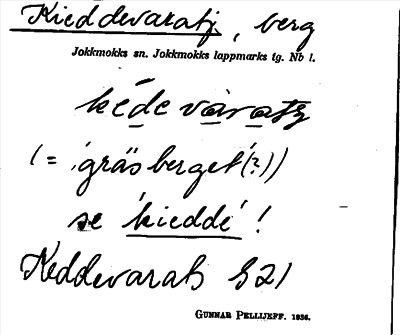 Kieddevaratj, berg
Jokkmokks sn. Jokkmokks lappmarks tg. Nb l.
kéde váratj
(= 'gräsberget'(?))
se 'kieddé'!
Keddevarats S21
GUNNAR PELLIJEFF. 1936.